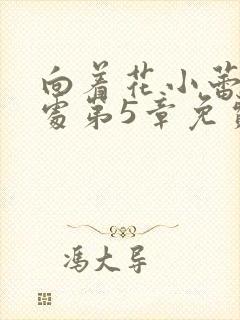 向着花小蕾
处第5章免费
冯大导